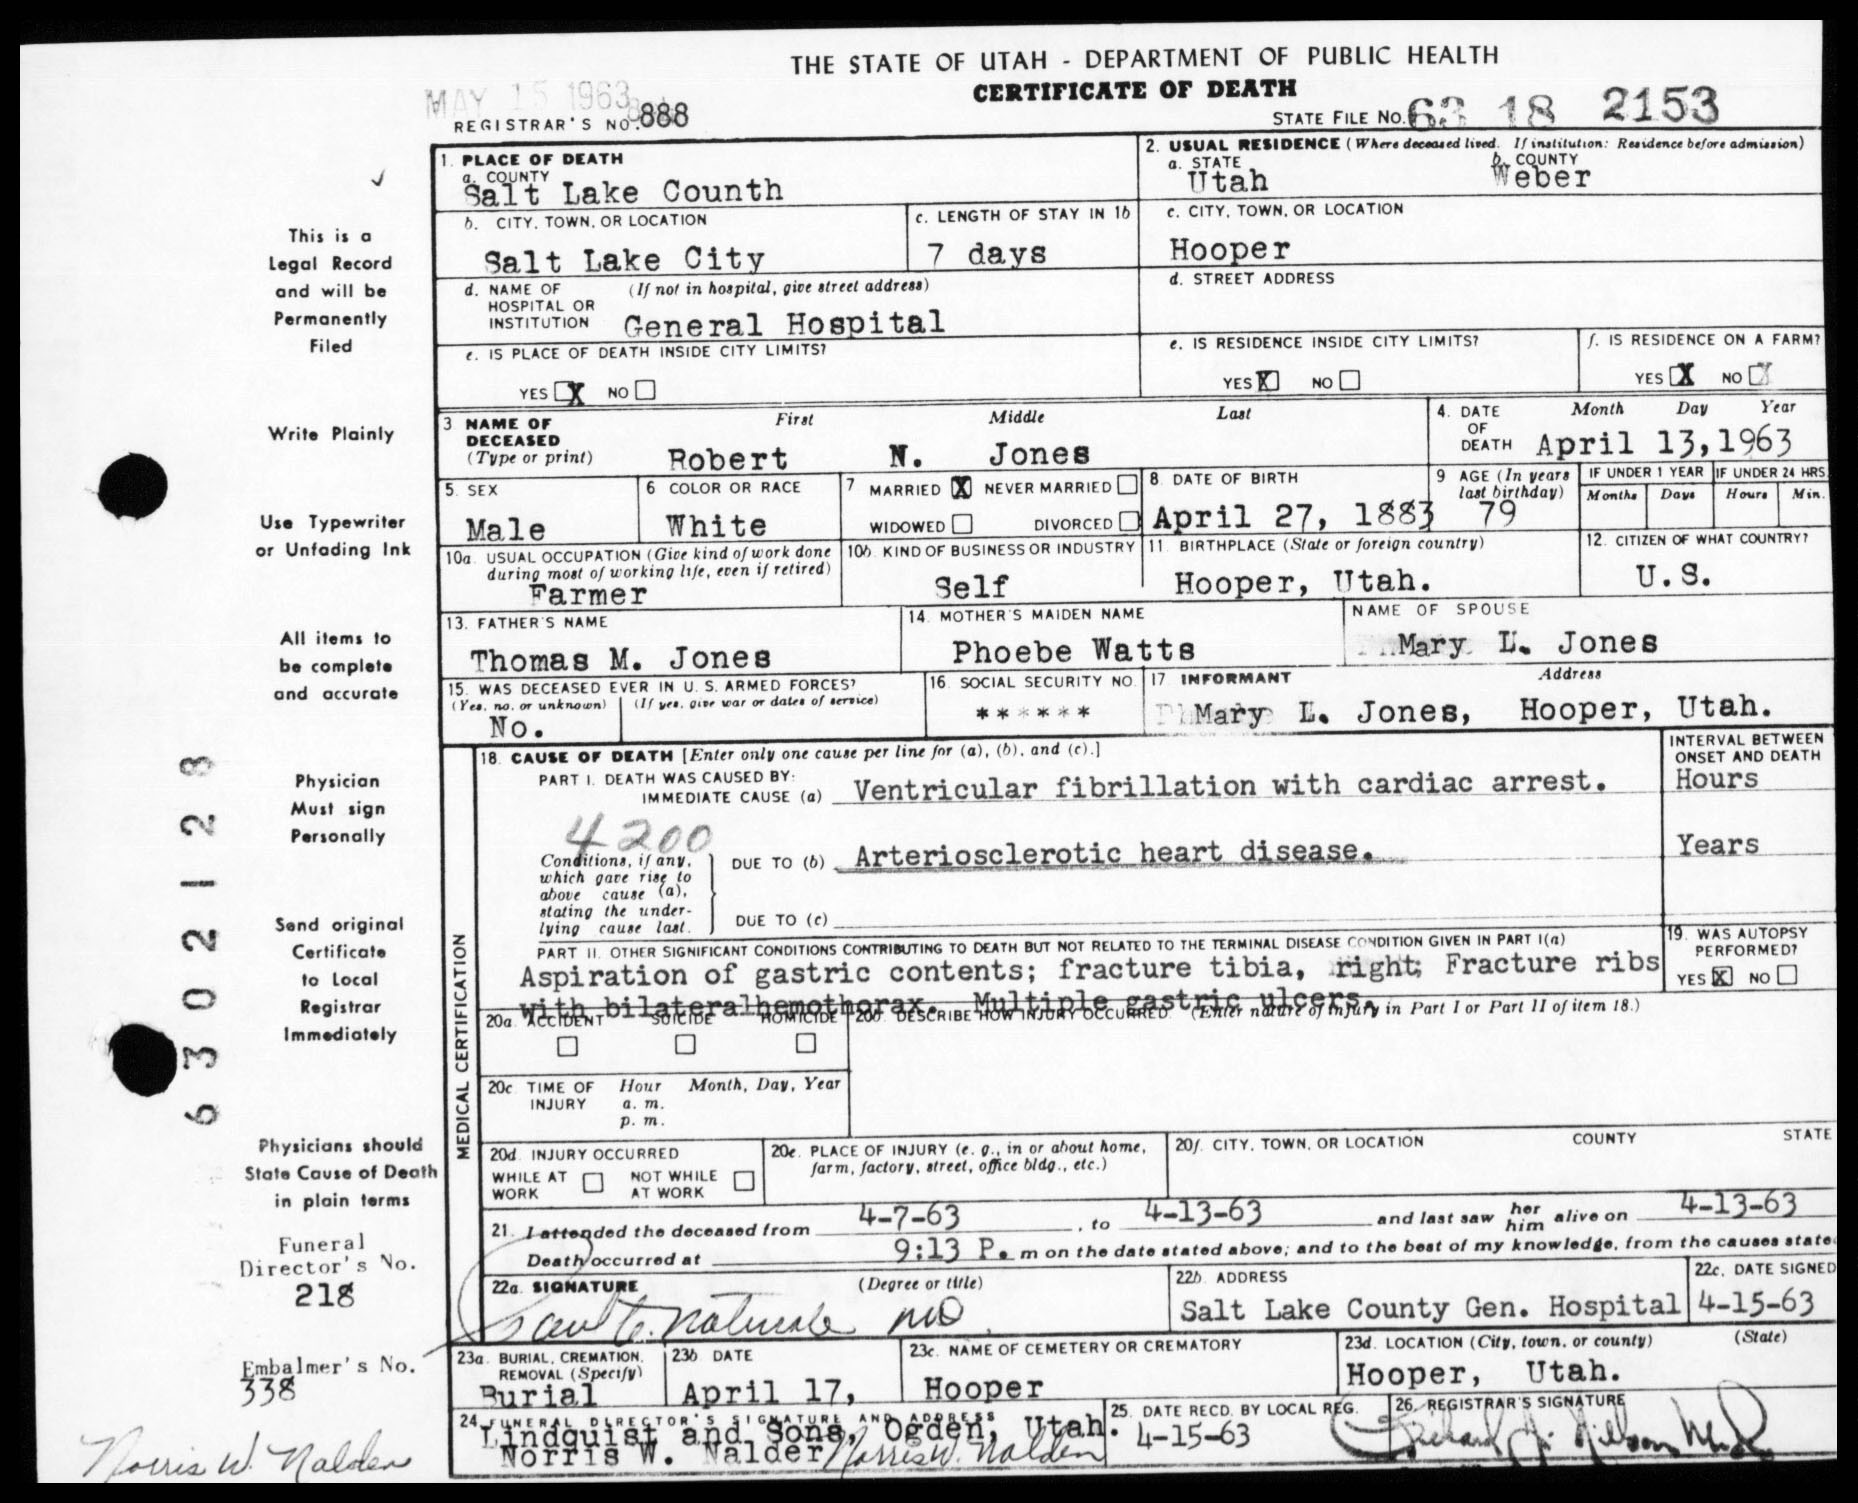 THE STATE OF UTAH - DEPARTMENT OF PUBLIC HEALTH
CERTIFICATE OF DEATH
MAY 15 1963
REGISTRAR'S NO. 888
STATE FILE NO. 63 18 2153
1. PLACE OF DEATH
a. COUNTY
Salt Lake Counth
2. USUAL RESIDENCE (Where deceased lived. If institution: Residence before admission)
a. STATE b. COUNTY
Utah Weber
b. CITY, TOWN, OR LOCATION
Salt Lake City
c. LENGTH OF STAY IN 1b
7 days
c. CITY, TOWN, OR LOCATION
Hooper
d. NAME OF HOSPITAL OR INSTITUTION (If not in hospital, give street address)
General Hospital
d. STREET ADDRESS
e. IS PLACE OF DEATH INSIDE CITY LIMITS?
YES X NO
e. IS RESIDENCE INSIDE CITY LIMITS?
YES X NO
f. IS RESIDENCE ON A FARM?
YES X NO X
3 NAME OF DECEASED (Type or print)
First Middle Last
Robert N. Jones
4. DATE OF DEATH
Month Day Year
April 13, 1963
5. SEX
Male
6 COLOR OR RACE
White
7 MARRIED X NEVER MARRIED
WIDOWED DIVORCED
8 DATE OF BIRTH
April 27, 1883
9 AGE (In years last birthday)
79
IF UNDER 1 YEAR
Months Days
IF UNDER 24 HRS.
Hours Min.
10a. USUAL OCCUPATION (Give kind of work done during most of working life, even if retired)
Farmer
10b. KIND OF BUSINESS OR INDUSTRY
Self
11. BIRTHPLACE (State or foreign country)
Hooper, Utah.
12. CITIZEN OF WHAT COUNTRY?
U.S.
13. FATHER'S NAME
Thomas M. Jones
14. MOTHER'S MAIDEN NAME
Phoebe Watts
NAME OF SPOUSE
Mary L. Jones
15. WAS DECEASED EVER IN U. S. ARMED FORCES?
(Yes, no, or unknown) (If yes, give war or dates of service)
No.
16. SOCIAL SECURITY NO.
******
17 INFORMANT Address
Mary L. Jones, Hooper, Utah.
MEDICAL CERTIFICATION
18. CAUSE OF DEATH [Enter only one cause per line for (a), (b), and (c).]
PART I. DEATH WAS CAUSED BY:
IMMEDIATE CAUSE (a) Ventricular fibrillation with cardiac arrest.
INTERVAL BETWEEN ONSET AND DEATH
Hours
4200
Conditions, if any, which gave rise to above cause (a), stating the underlying cause last.
DUE TO (b) Arteriosclerotic heart disease.
Years
DUE TO (c)
PART II. OTHER SIGNIFICANT CONDITIONS CONTRIBUTING TO DEATH BUT NOT RELATED TO THE TERMINAL DISEASE CONDITION GIVEN IN PART I(a)
Aspiration of gastric contents; fracture tibia, right; Fracture ribs
with bilateralhemothorax. Multiple gastric ulcers.
19. WAS AUTOPSY PERFORMED?
YES X NO
20a. ACCIDENT SUICIDE HOMICIDE
20b. DESCRIBE HOW INJURY OCCURRED. (Enter nature of injury in Part I or Part II of item 18.)
20c TIME OF INJURY
Hour Month, Day, Year
a. m.
p. m.
20d INJURY OCCURRED
WHILE AT WORK NOT WHILE AT WORK
20e. PLACE OF INJURY (e. g., in or about home, farm, factory, street, office bldg., etc.)
20f. CITY, TOWN, OR LOCATION COUNTY STATE
21. I attended the deceased from 4-7-63, to 4-13-63 and last saw her him alive on 4-13-63
Death occurred at 9:13 P. m on the date stated above; and to the best of my knowledge, from the causes state
22a. SIGNATURE (Degree or title)
MD
22b. ADDRESS
Salt Lake County Gen. Hospital
22c. DATE SIGNED
4-15-63
23a. BURIAL, CREMATION, REMOVAL (Specify)
Burial
23b DATE
April 17,
23c. NAME OF CEMETERY OR CREMATORY
Hooper
23d. LOCATION (City, town, or county) (State)
Hooper, Utah.
24 FUNERAL DIRECTOR'S SIGNATURE AND ADDRESS
Lindquist and Sons, Ogden, Utah.
Norris W. Nalder Norris W. Nalder
25. DATE RECD. BY LOCAL REG.
4-15-63
26. REGISTRAR'S SIGNATURE
This is a
Legal Record
and will be
Permanently
Filed
Write Plainly
Use Typewriter
or Unfading Ink
All items to
be complete
and accurate
Physician
Must sign
Personally
Send original
Certificate
to Local
Registrar
Immediately
Physicians should
State Cause of Death
in plain terms
Funeral
Director's No.
218
Embalmer's No.
338
Norris W. Nalder
6302128